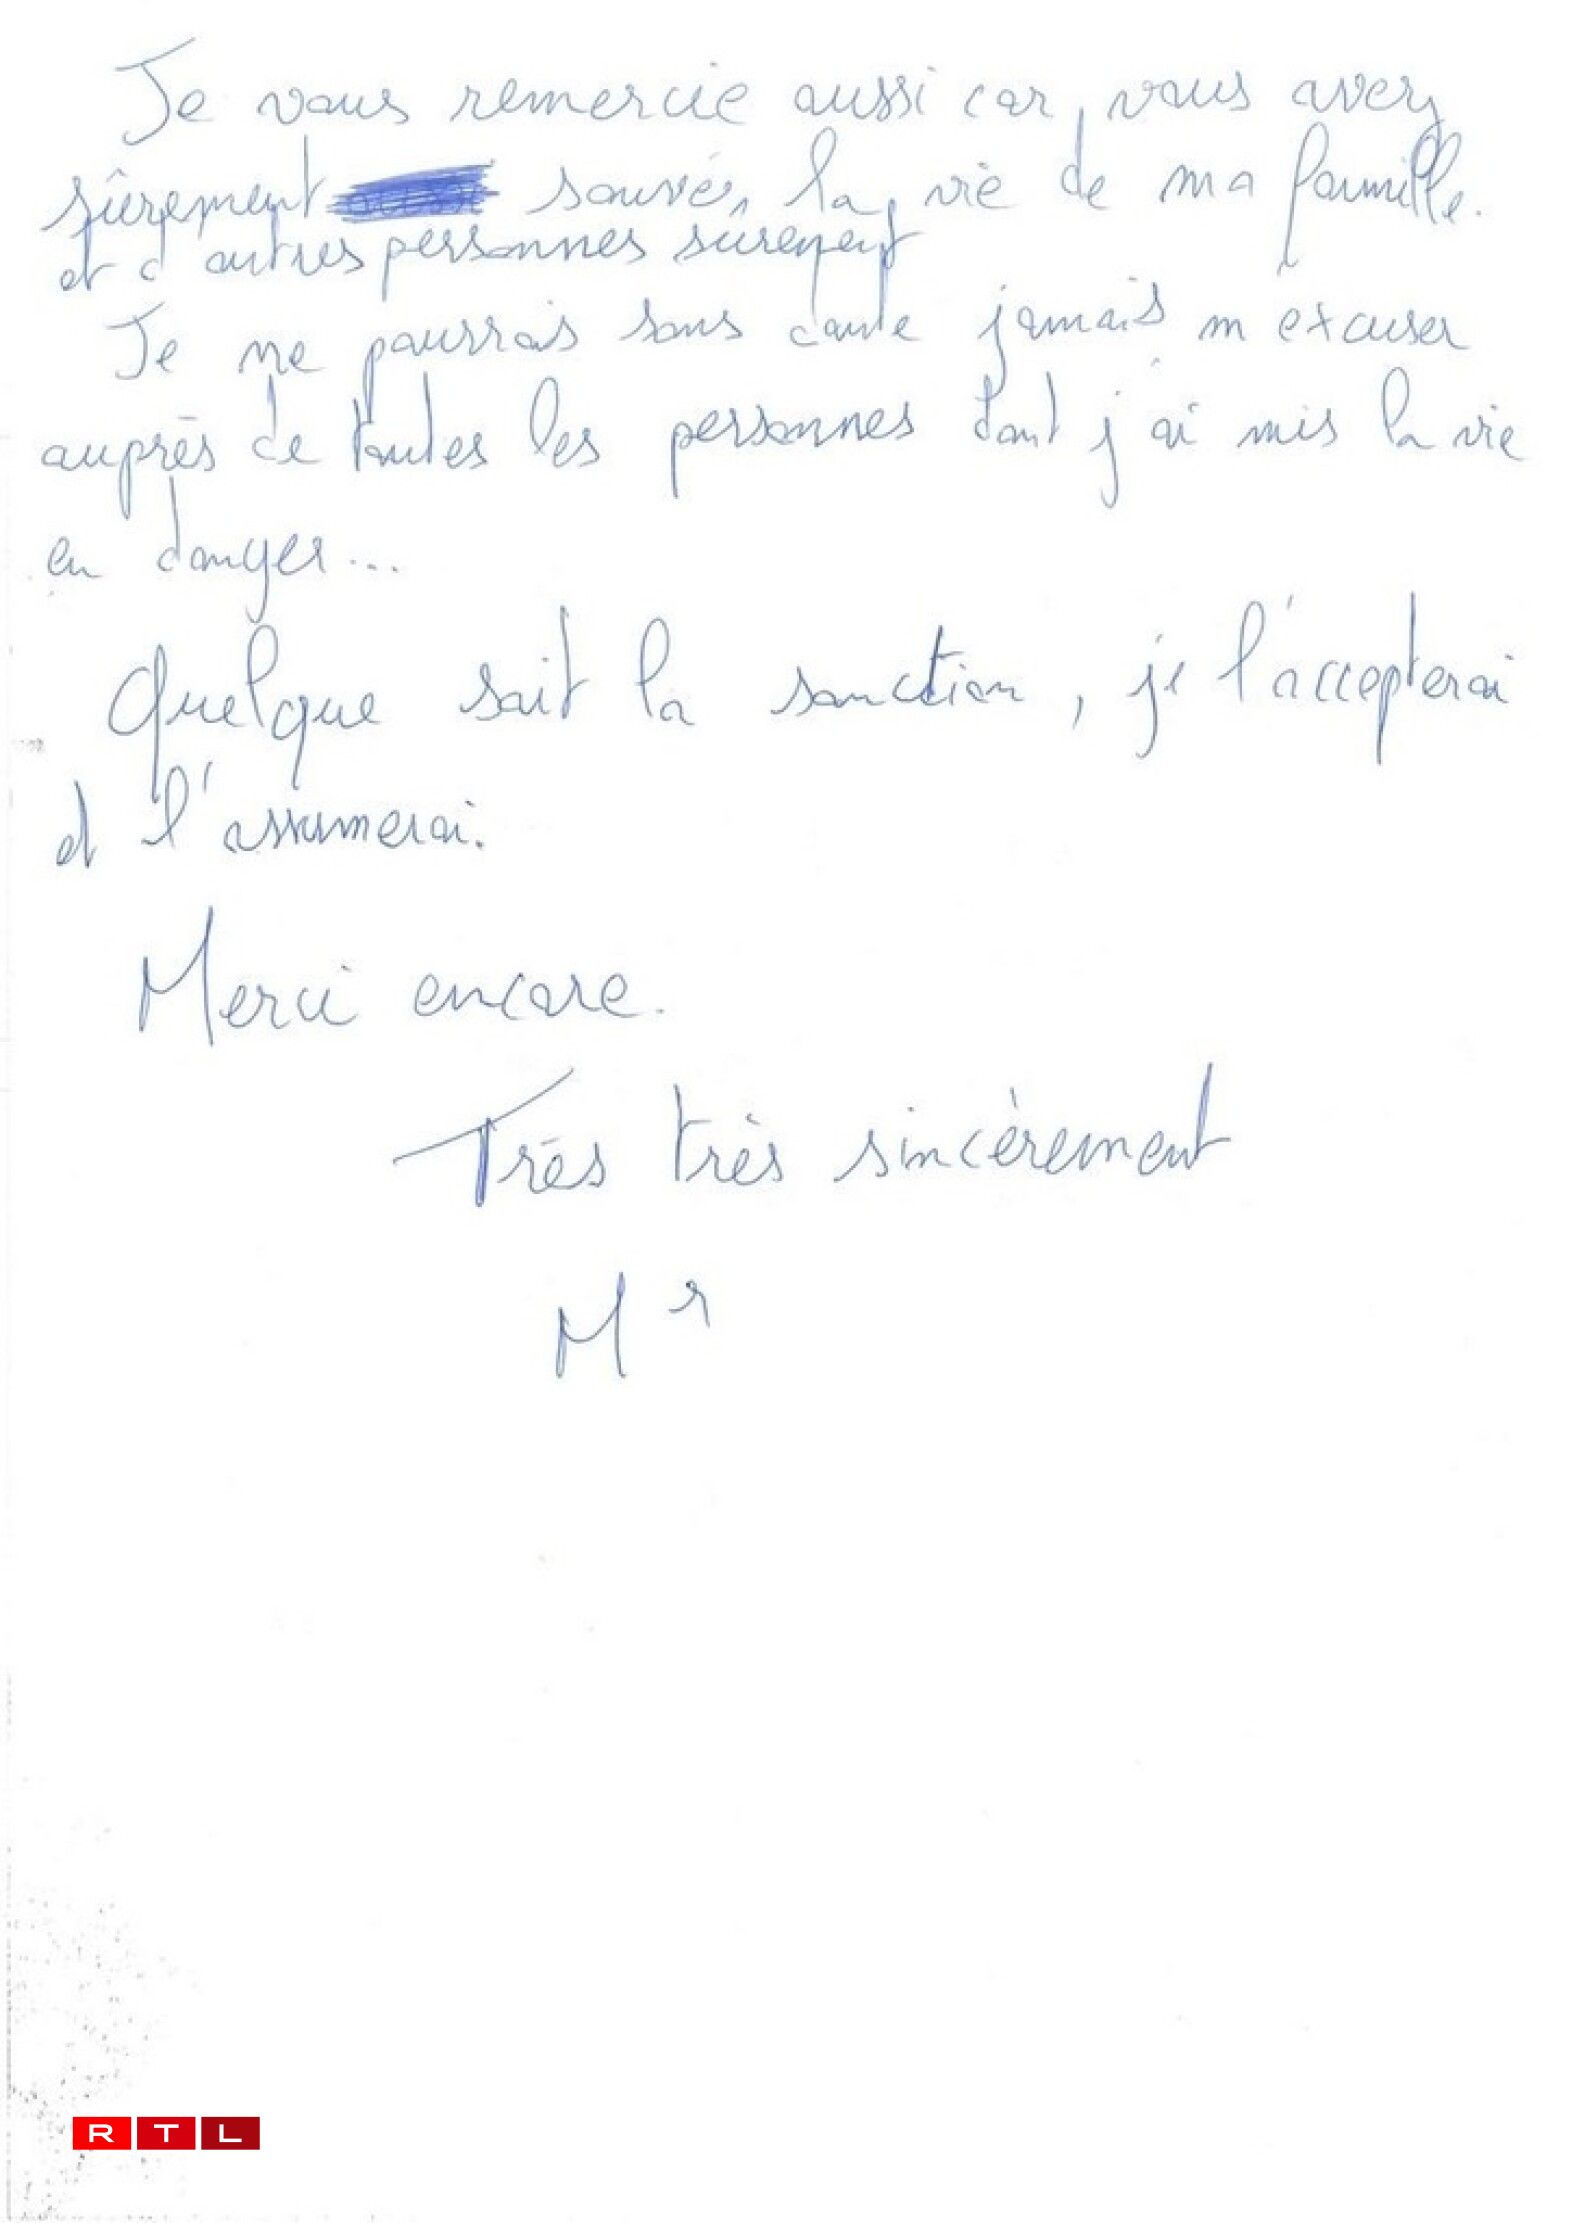 Je vous remercie aussi car, vous avez
sûrement sauvé, la, vie de ma famille.
et d'autres personnes sûrement
Je ne pourrais sans doute jamais m'excuser
auprès de toutes les personnes dont j'ai mis la vie
en danger...
Quelque soit la sanction, je l'accepterai
et l'assumerai.
Merci encore.
Très très sincèrement
Mr
RTL